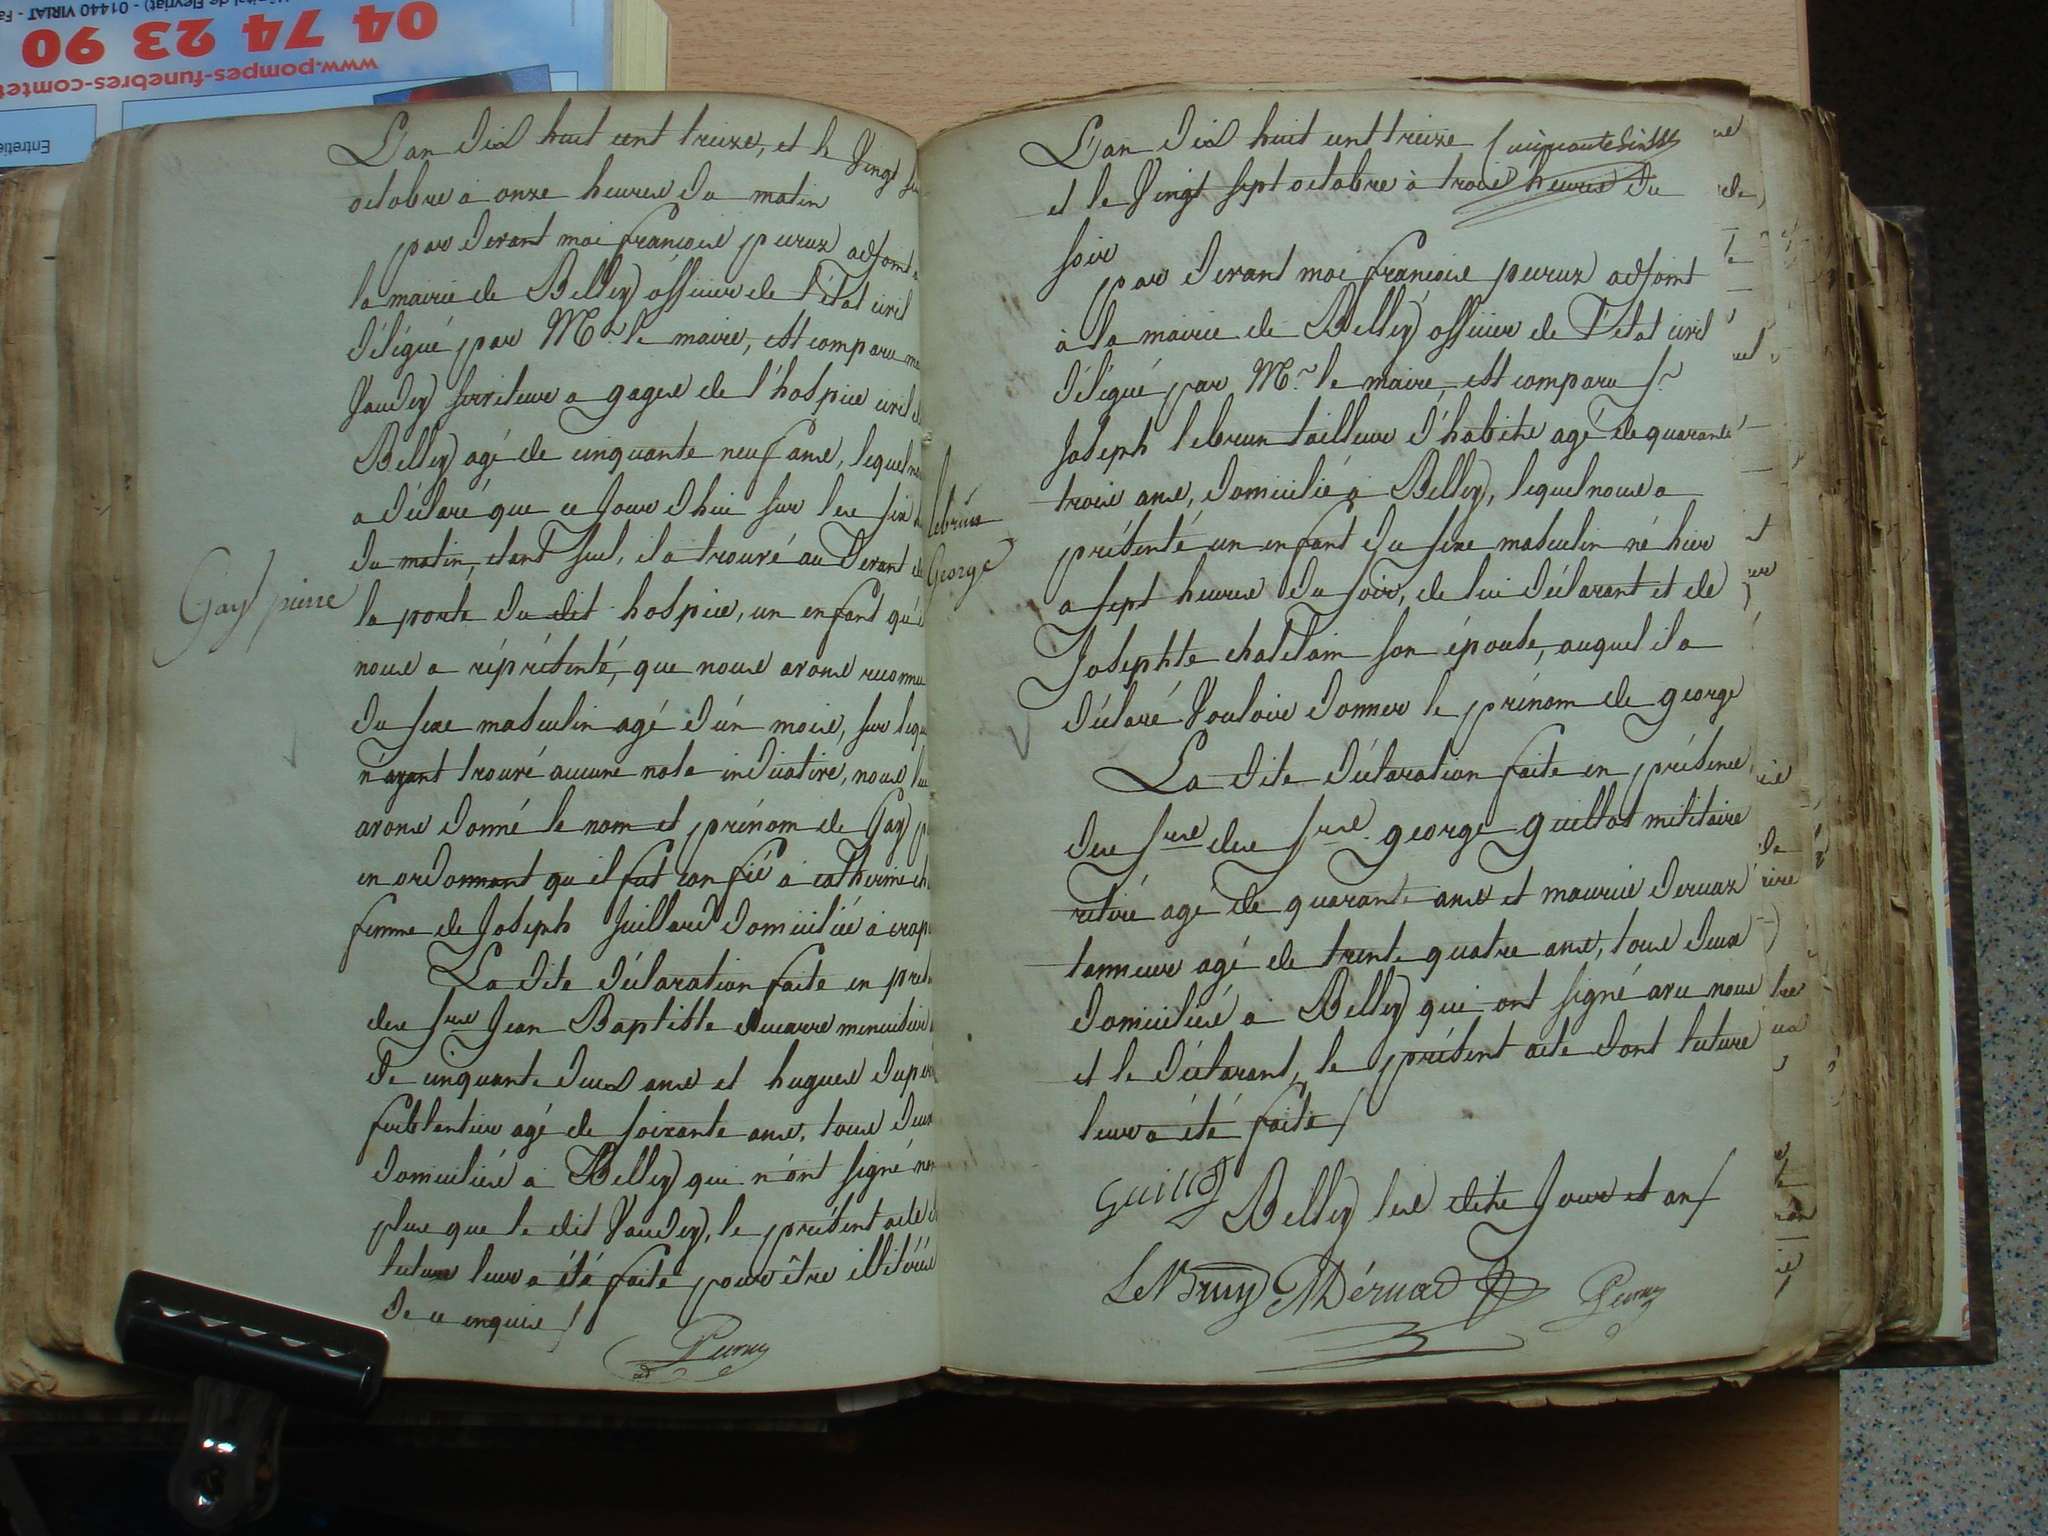 l de Fleyriat) - 01440 VIRIAT - Fa
04 74 23 90
www.pompes-funebres-comtet
Entretie
L'an dix huit cent treize, et le Vingt
octobre a onze heures du matin
par devant moi françois peruz adjoint
la mairie de Belley officier de l'état civil
délégué par Mr. le maire, est comparu
Vaudey serviteur a gages de l'hospice civil
Belley agé de cinquante neuf ans, lequel
a déclaré que ce jour d'hui sur les six
du matin, etant seul, il a trouvé au devant
Gay pierre
la porte du dit hospice, un enfant qu'il
nous a réprésenté, que nous avons reconnu
du sexe masculin agé d'un mois, sur
n'ayant trouvé aucune note indicative, nous lui
avons donné le nom et prénom de Gay
en ordonnant qu'il fut confié a catherine
femme de Joseph Juillard domiciliée a
La dite déclaration faite en
des srs Jean Baptiste ducarre menuisier
de cinquante deux ans et hugues
agé de soixante ans, tous deux
domiciliés a Belley qui n'ont signé non
plus que le dit Vaudey, le présent acte
lecture leur a été faite pour être illitérés
de ce enquis /
Peruz
adt
L'an dix huit cent treize cinquante
et le Vingt sept octobre à trois heures du
soir
par devant moi françois peruz adjoint
à la mairie de Belley officier de l'état civil
délégué par Mr. le maire, est comparu sr
Joseph lebrun tailleur d'habits agé de quarante
trois ans, domicilié a Belley, lequel nous a
lebrun
George
présenté un enfant du sexe masculin né hier
a sept heures du soir, de lui déclarant et de
Josephte chatelain son épouse, auquel il a
déclaré Vouloir donner le prénom de george
La dite déclaration faite en présence
des srs des srs george guillot militaire
retiré agé de quarante ans et maurice deruaz
tanneur agé de trente quatre ans, tous deux
domiciliés a Belley qui ont signé avec nous
et le déclarant, le présent acte dont lecture
leur a été faite /
Guillot
Belley les dits Jour et an /
LeBrun MDéruad Peruz